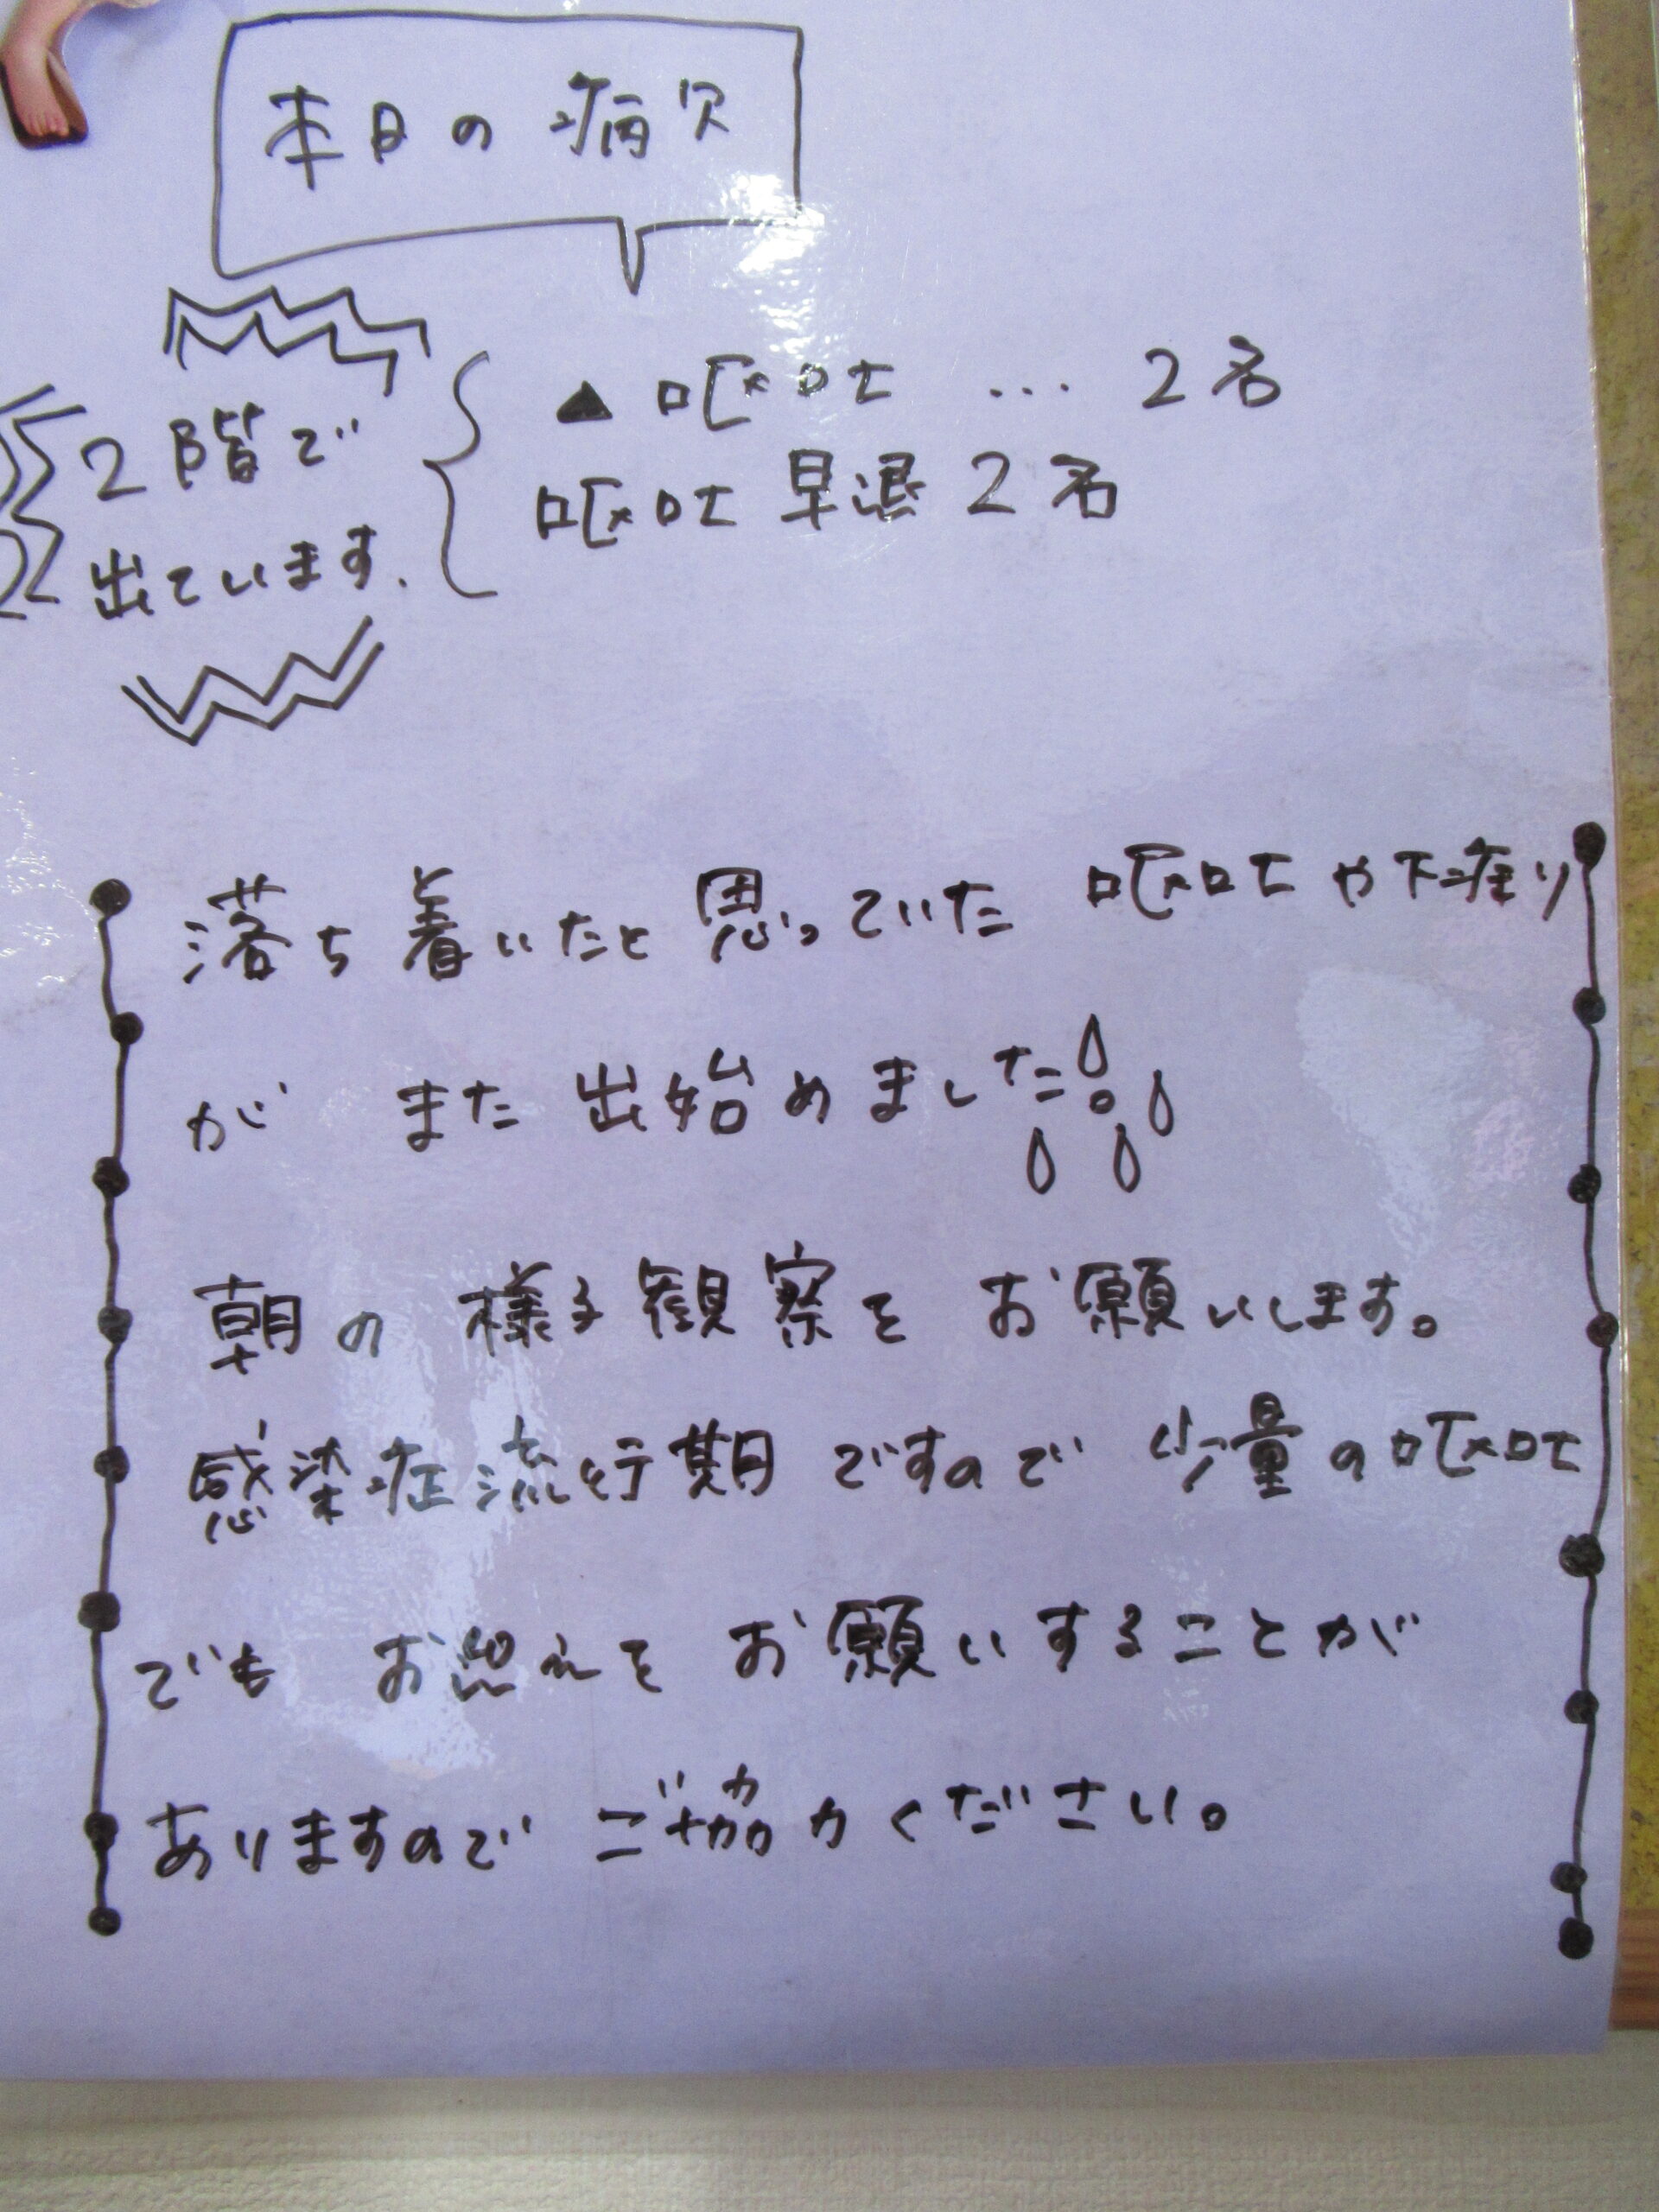 本日の病欠
▲嘔吐 … 2名
嘔吐早退2名
2階で
出ています.
落ち着いたと思っていた 嘔吐や下痢り
が また出始めました。
朝の様子観察を お願いします。
感染症流行期ですので 少量の嘔吐
でも お迎えを お願いすることが
ありますので ご協力ください。